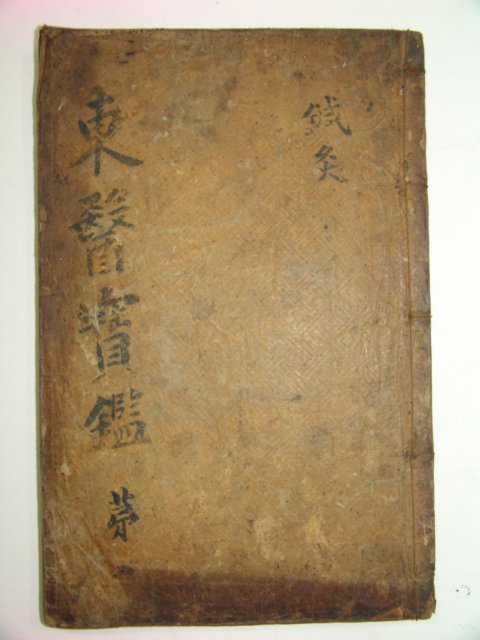 鍼灸
東醫寶鑑 苐